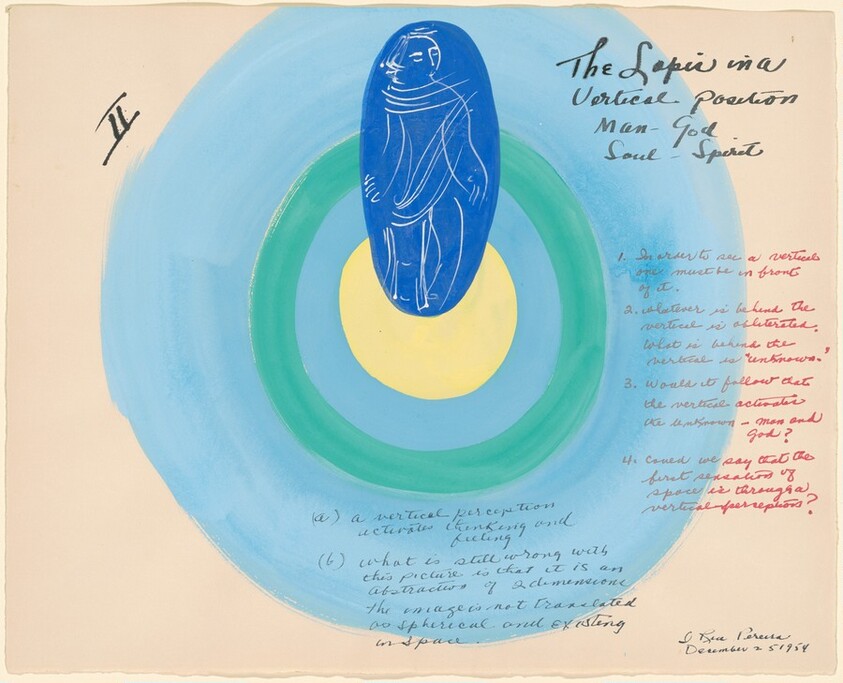 II
The Lapis in a
Vertical Position
Man - God
Soul - Spirit
1. In order to see a vertical
one must be in front
of it.
2. Whatever is behind the
vertical is obliterated.
What is behind the
vertical is "unknown."
3. Would it follow that
the vertical activates
the unknown - man and
God?
4. Could we say that the
first sensation of
space is through a
vertical perception?
(a) a vertical perception
activates thinking and
feeling
(b) what is still wrong with
this picture is that it is an
abstraction of 2 dimensions
The image is not translated
as spherical and existing
in space.
I Rice Pereira
December 25 1954